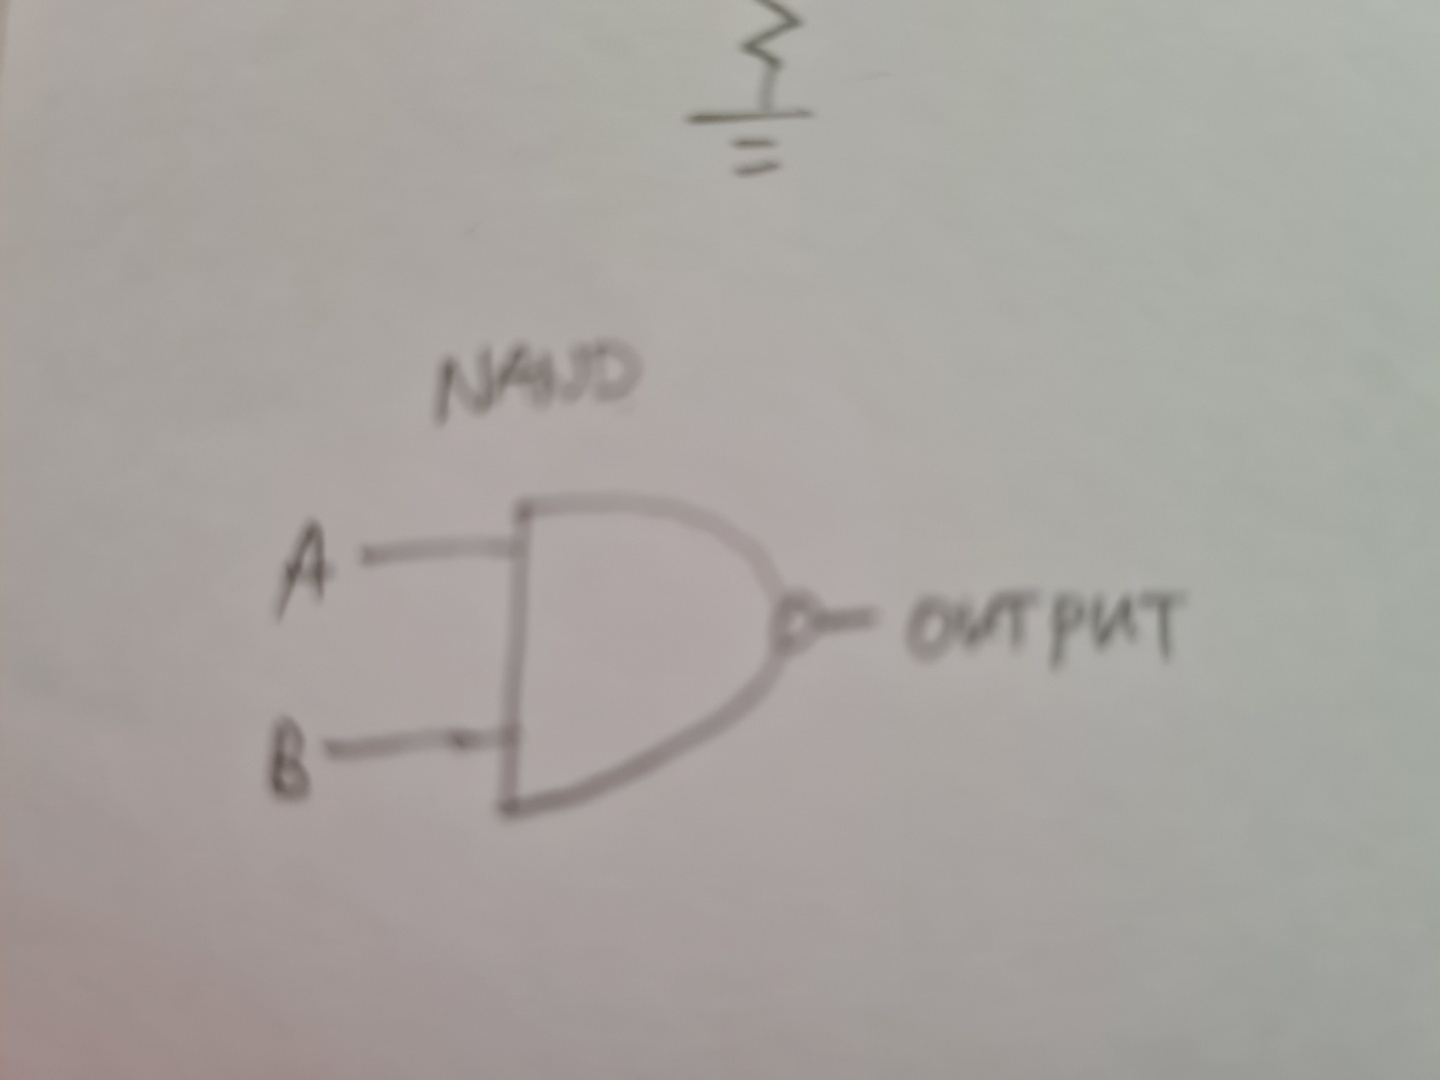 NAND
A
OUTPUT
B